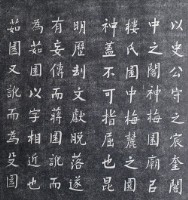 以史公守之宸奎閣
中之閣神梅園廟
樓氏園中梅麓之園
神蓋不可指屈也昆
明歷刻文獻脫落遂
有妄傳而蔣園訛
為茹園以字相近也
茹園又訛而為朶園